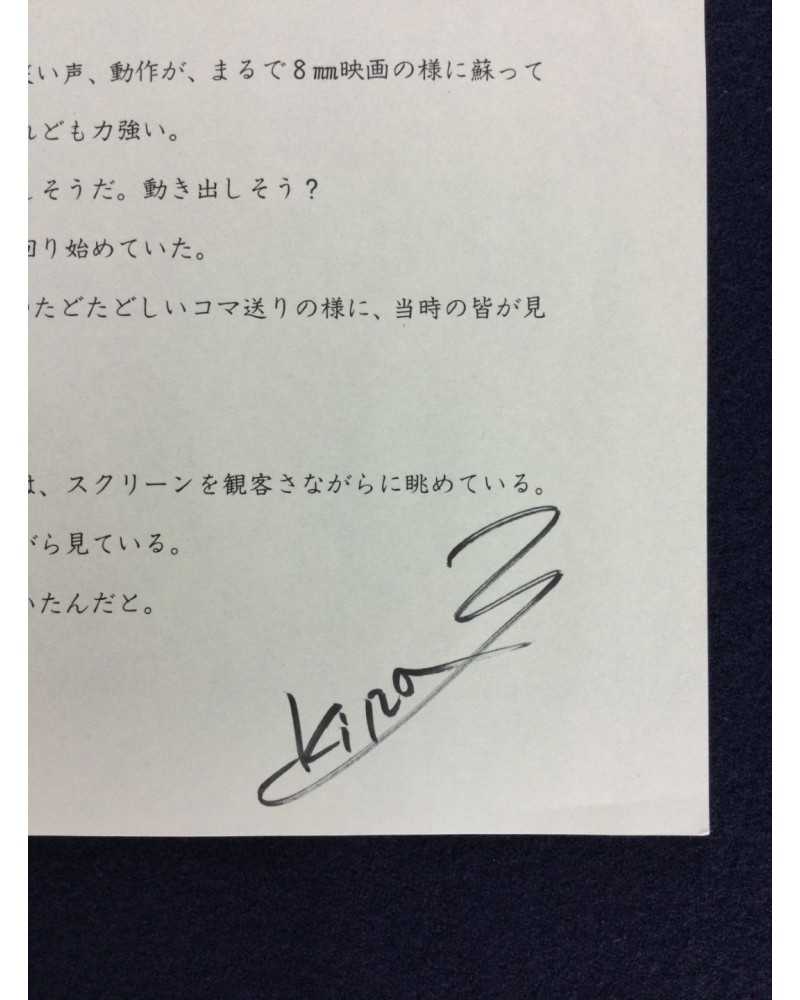 い声、動作が、まるで８㎜映画の様に蘇って
れども力強い。
しそうだ。動き出しそう？
回り始めていた。
たどたどしいコマ送りの様に、当時の皆が見
は、スクリーンを観客さながらに眺めている。
がら見ている。
いたんだと。